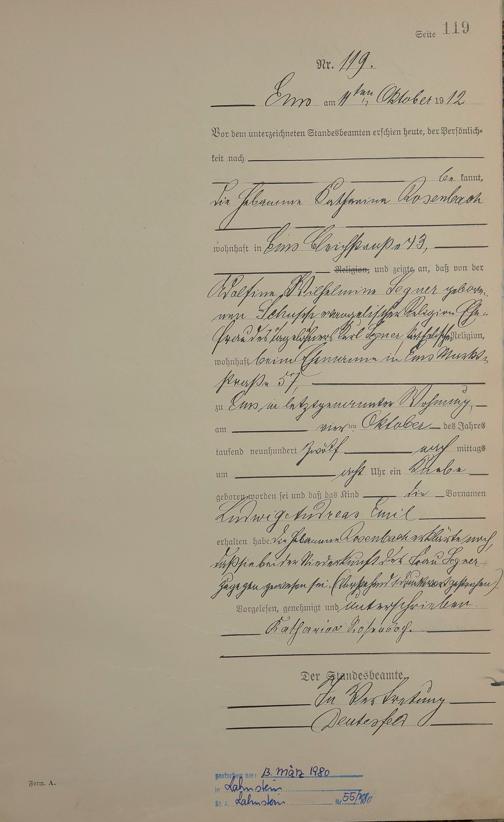 Seite 119
Nr. 119.
Ems am 11ten Oktober 1912
Vor dem unterzeichneten Standesbeamten erschien heute, der Persönlich-
keit nach
be kannt,
die Hebamme Katharina Rosenbach
wohnhaft in Ems 13,
Religion, und zeigte an, daß von der
Adolfine Wilhelmine Segner gebore-
nen evangelischer Religion Ehe-
frau des Tagelöhners Karl Segner, Religion,
wohnhaft beim Ehemanne in Ems Markt-
straße 57,
zu Ems, in letztgenannter Wohnung,
am vierten Oktober des Jahres
tausend neunhundert zwölf nach mittags
um acht Uhr ein Knabe
geboren worden sei und daß das Kind die Vornamen
Ludwig Andreas Emil
erhalten habe. Die Hebamme Rosenbach erklärte noch,
daß sie bei der Niederkunft der Frau Segner
zugegen gewesen sei. (Vorstehend Druckwort gestrichen).
Vorgelesen, genehmigt und unterschrieben
Katharina Rosenbach.
Der Standesbeamte.
In Vertretung
gestorben am: 13. März 1980
in Lahnstein
St. A. Lahnstein Nr. 55/1980
Form. A.